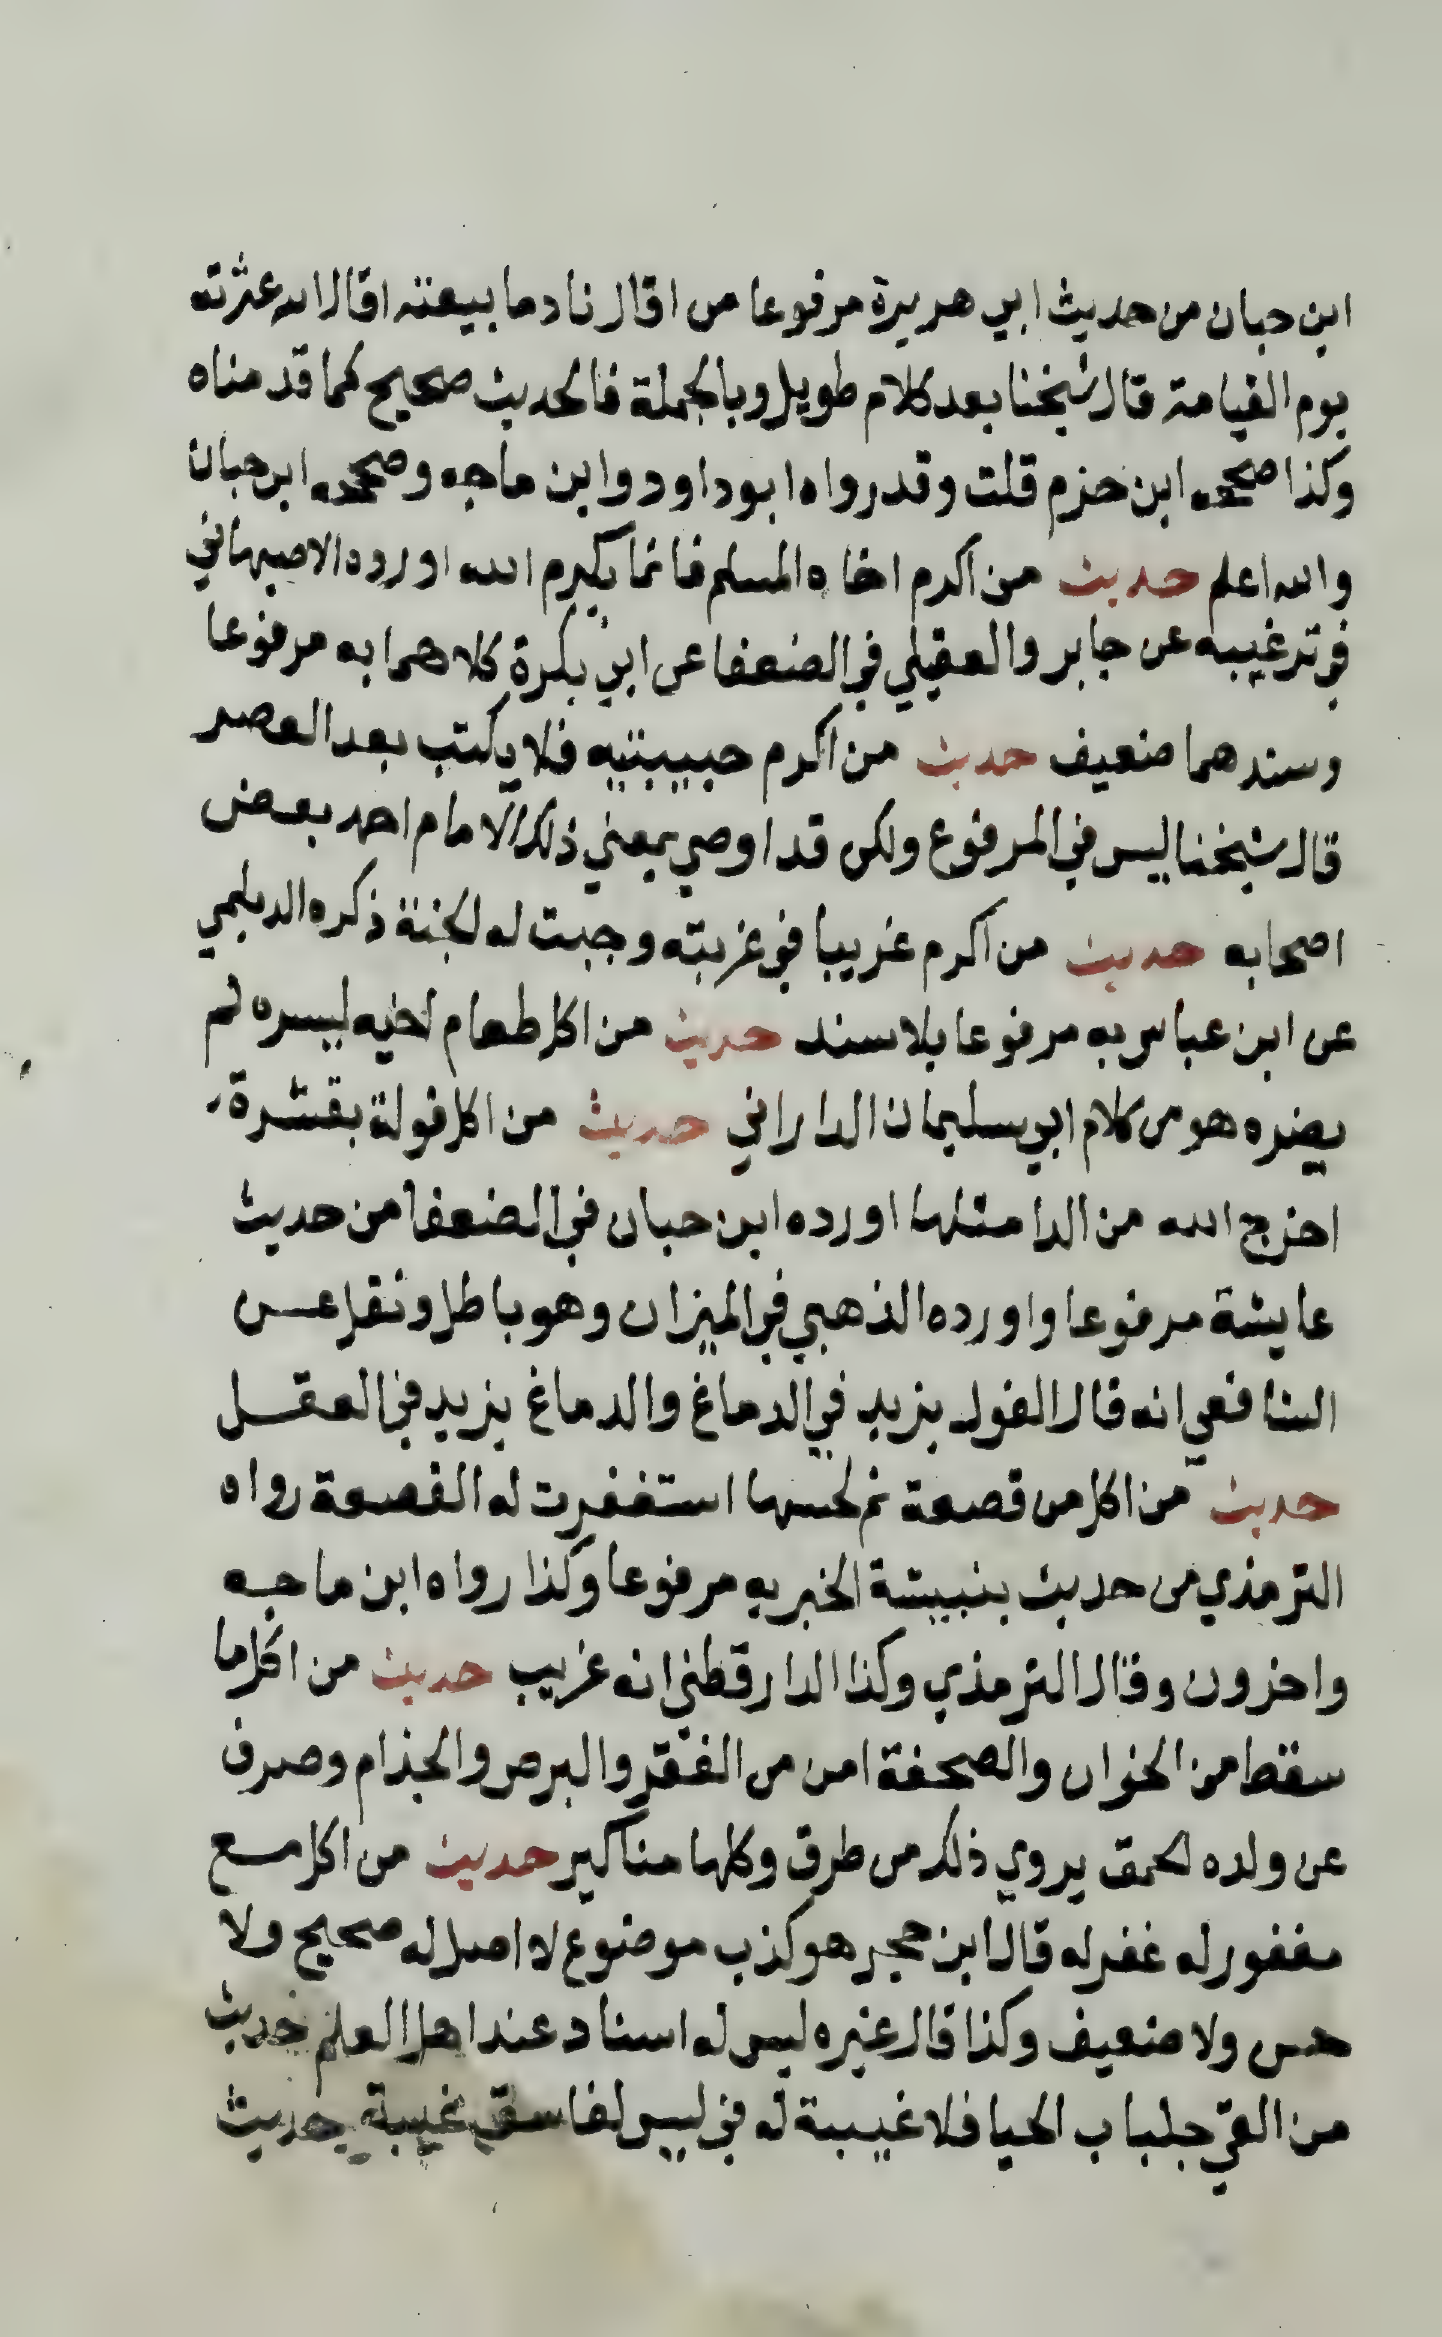 ابن حبان من حديث ابي هريرة مرفوعا من اقال نادما بيعته اقال الله عثرته
يوم القيامة قال شيخنا بعد كلام طويل وبالجملة فالحديث صحيح كما قدمناه
وكذا صححه ابن حزم قلت وقد رواه ابو داود وابن ماجه وصححه ابن حبان
والله اعلم حديث من اكرم اخاه المسلم فانما يكرم الله اورده الاصبهاني
في ترغيبه عن جابر والعقيلي في الضعفا عن ابي بكرة كلاهما به مرفوعا
وسندهما ضعيف حديث من اكرم حبيبتيه فلا يكتب بعد العصر
قال شيخنا ليس في المرفوع ولكن قد اوصي بمعني ذلك الامام احمد بعض
اصحابه حديث من اكرم غريبا في غربته وجبت له الجنة ذكره الديلمي
عن ابن عباس به مرفوعا بلا سند حديث من اكل طعام اخيه ليسره لم
يضره هو من كلام ابي سليمان الداراني حديث من اكل فولة بقشرة
اخرج الله من الدا مثلها اورده ابن حبان في الضعفا من حديث
عايشة مرفوعا واورده الذهبي في الميزان وهو باطل ونقل عن
الشافعي انه قال الفول يزيد في الدماغ والدماغ يزيد في العقل
حديث من اكل من قصعة ثم لحسها استغفرت له القصعة رواه
الترمذي من حديث بنبيشة الخير به مرفوعا وكذا رواه ابن ماجه
واخرون وقال الترمذي وكذا الدارقطني انه غريب حديث من اكل ما
سقط من الخوان والصحفة امن من الفقر والبرص والجذام وصرف
عن ولده الحمق يروي ذلك من طرق وكلها مناكير حديث من اكل مع
مغفور له غفر له قال ابن حجر هو كذب موضوع لا اصل له صحيح ولا
حسن ولا ضعيف وكذا قال غيره ليس له اسناد عند اهل العلم حديث
من القي جلباب الحيا فلا غيبة له في ليس لفاسق غيبة حديث